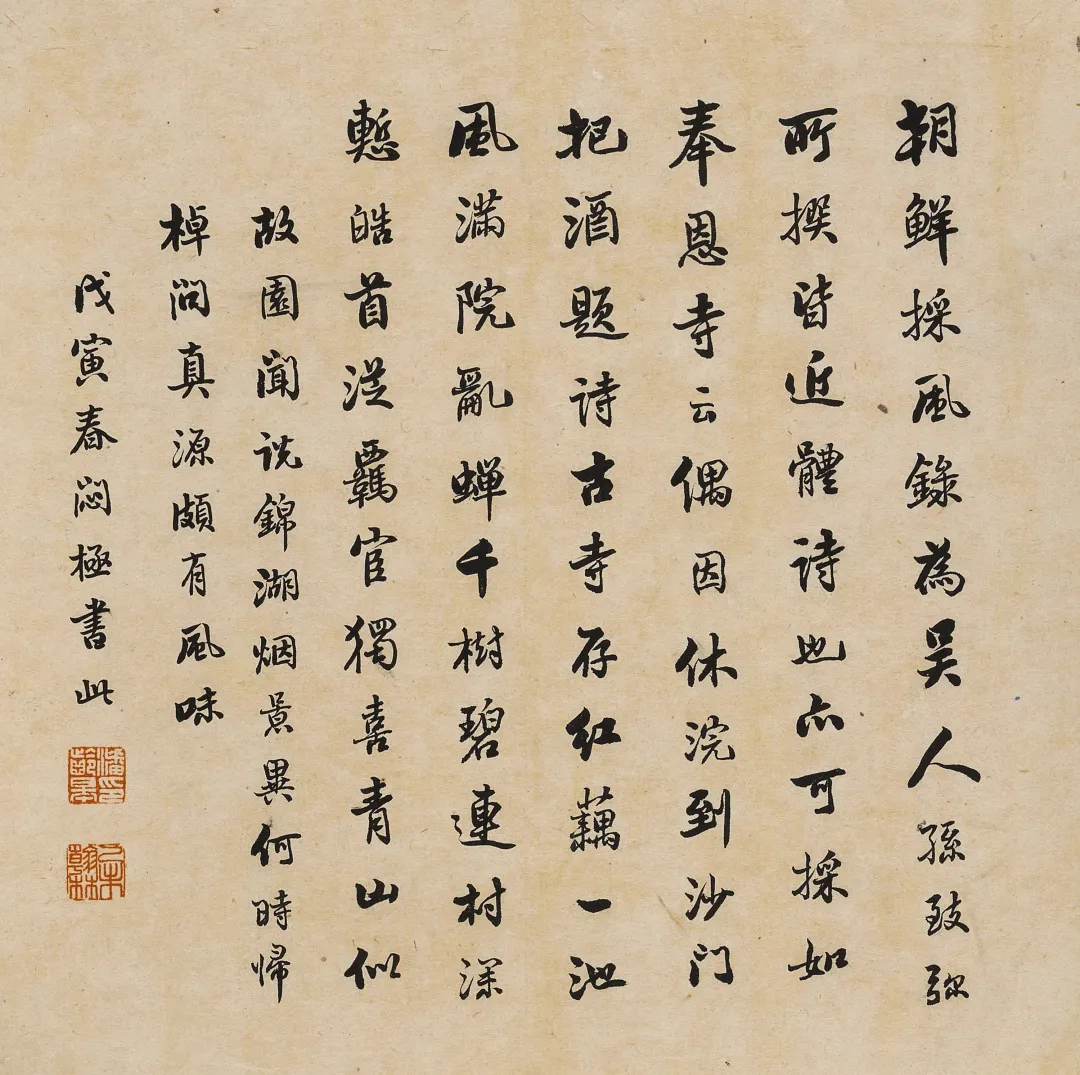 朝鮮採風錄為吳人孫致彌
所撰皆近體詩也亦可採如
奉恩寺云偶因休浣到沙门
把酒題詩古寺存紅藕一池
風滿院亂蟬千樹碧連村深
慙皓首從羈宦獨喜青山似
故園聞説錦湖烟景異何時歸
棹問真源頗有風味
戊寅春悶極書此
潘印齡皋
乙未翰林